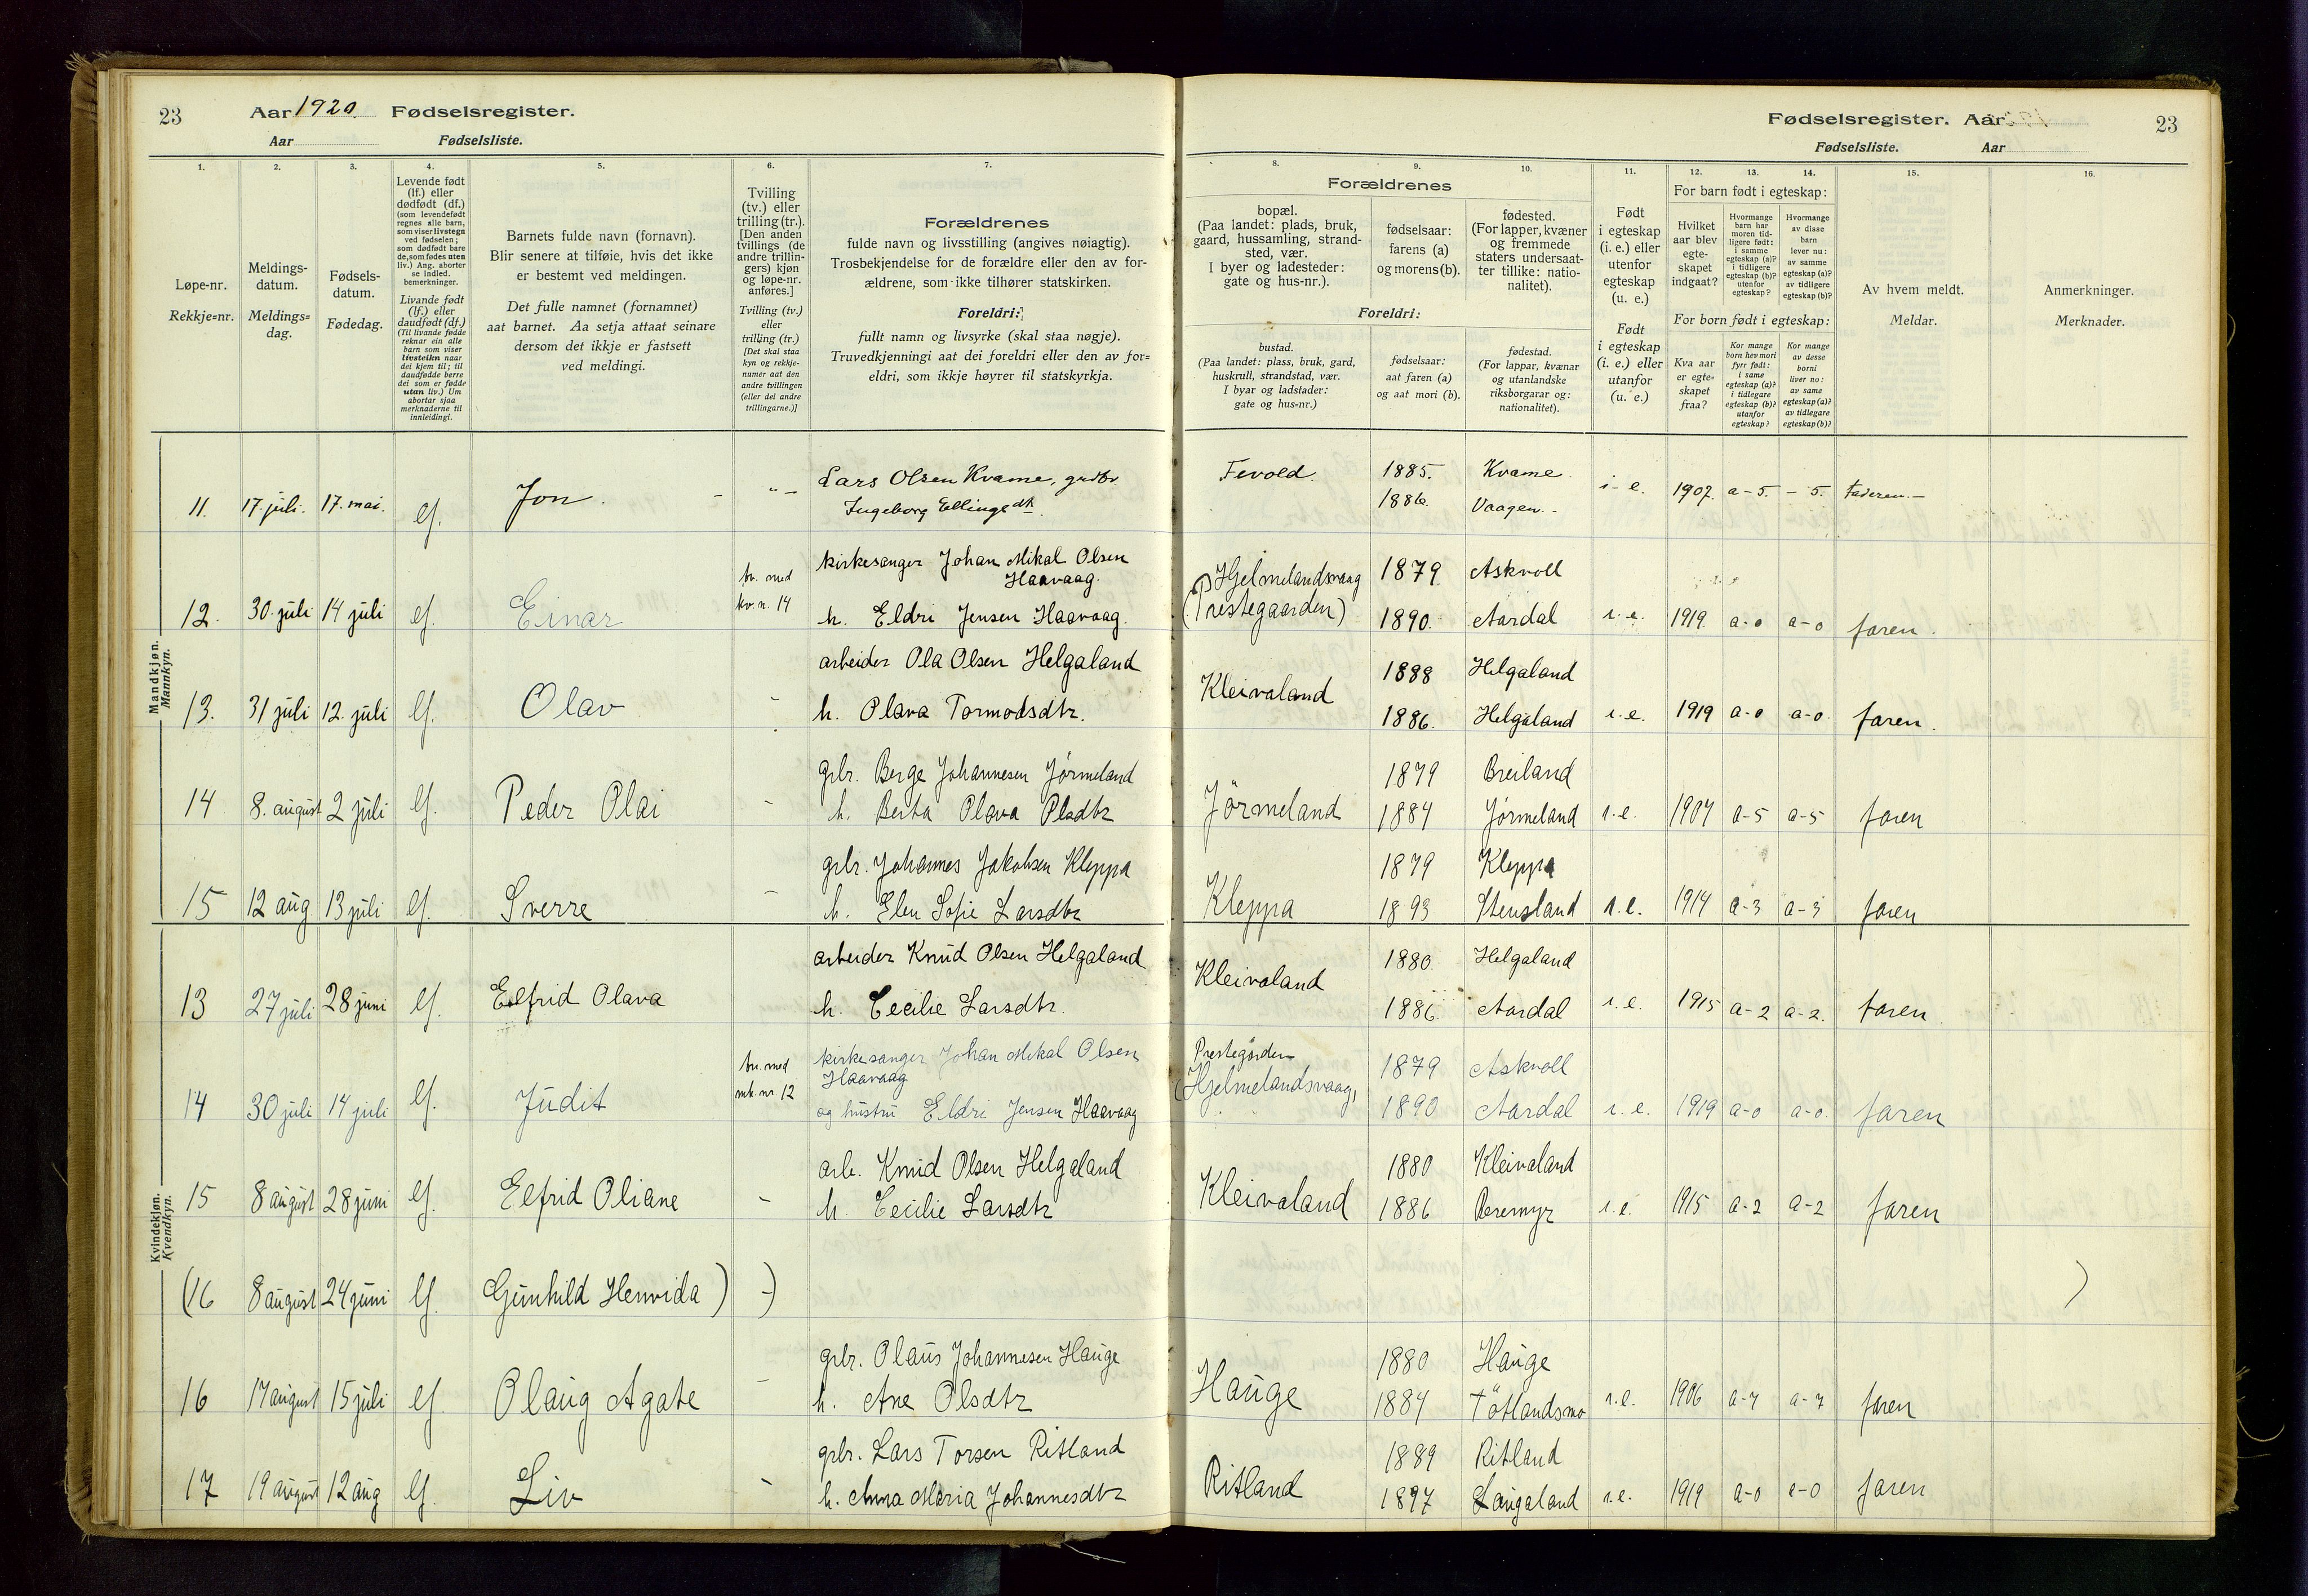 23 Aar 1920. Fødselsregister.
Aar Fødselsliste.
Fødselsregister. Aar 23
Fødselsliste. Aar
1. 2. 3. 4. 5. 6. 7.
8. 9. 10. 11. 12. 13. 14. 15. 16.
Løpe-nr.
Rekkje=nr.
Meldings-
datum.
Meldings=
dag.
Fødsels-
datum.
Fødedag.
Levende født
(lf.) eller
dødfødt (df.)
(som levendefødt
regnes alle barn,
som viser livstegn
ved fødselen;
som dødfødt bare
de, som fødes uten
liv.) Ang. aborter
se indled.
bemerkninger.
Livande født
(lf.) eller
daudfødt (df.)
(Til livande fødde
reknar ein alle
barn som viser
livsteikn naar
dei kjem til; til
daudfødde berre
dei som er fødde
utan liv.) Um
abortar sjaa
merknaderne til
innleidingi.
Barnets fulde navn (fornavn).
Blir senere at tilføie, hvis det ikke
er bestemt ved meldingen.
Det fulle namnet (fornamnet)
aat barnet. Aa setja attaat seinare
dersom det ikkje er fastsett
ved meldingi.
Tvilling
(tv.) eller
trilling (tr.).
[Den anden
tvillings (de
andre trillin-
gers) kjøn
og løpe-nr.
anføres.]
Tvilling (tv.)
eller
trilling (tr.)
[Det skal staa
kyn og rekkje-
numer aat den
andre tvillingen
(eller dei andre
trillingarne.)]
Forældrenes
fulde navn og livsstilling (angives nøiagtig).
Trosbekjendelse for de forældre eller den av for-
ældrene, som ikke tilhører statskirken.
Foreldri:
fullt namn og livsyrke (skal staa nøgje).
Truvedkjenningi aat dei foreldri eller den av for=
eldri, som ikkje høyrer til statskyrkja.
Forældrenes
bopæl.
(Paa landet: plads, bruk,
gaard, hussamling, strand-
sted, vær.
I byer og ladesteder:
gate og hus-nr.).
fødselsaar:
farens (a)
og morens (b).
fødested.
(For lapper, kvæner
og fremmede
staters undersaat-
ter tillike: natio-
nalitet).
Foreldri:
bustad.
(Paa landet: plass, bruk, gard,
huskrull, strandstad, vær.
I byar og ladstader:
gate og hus=nr.)
fødselsaar:
aat faren (a)
og aat mori (b).
fødestad.
(For lappar, kvænar
og utanlandske
riksborgarar og:
nationalitet).
Født
i egteskap
(i. e.) eller
utenfor
egteskap
(u. e.)
Født
i egteskap
(i. e.) eller
utanfor
(u. e.)
For barn født i egteskap:
Hvilket
aar blev
egte-
skapet
indgaat?
Hvormange
barn har
moren tid-
ligere født:
i samme
egteskap (a)?
i tidligere
egteskap (b)?
utenfor
egteskap?
Hvormange
av disse
barn
lever nu:
av samme
egteskap (a)?
av tidligere
egteskap (b)?
For born født i egteskap:
Kva aar
er egte=
skapet
fraa?
Kor mange
born hev mori
fyrr født:
i same
egteskap (a)?
i tidlegare
egteskap (b)?
utanfor
egteskap?
Kor mange
av desse
borni
liver no:
av same
egteskap (a)?
av tidlegare
egteskap (b)?
Av hvem meldt.
Meldar.
Anmerkninger.
Merknader.
Mandkjøn.
Mannkyn.
Lars Olsen Kvame, grdbr. Fevold. 1885. Kvame.
11. 17. juli. 17. mai. lf. Jon. - Ingeborg Ellingsdtr. 1886. Vaagen. i. e. 1907. a-5. - 5. Faderen.
tv. med kirkesanger Johan Mikal Olsen Hjelmelandsvaag 1879 Askvoll
Haavaag.
12. 30. juli 14 juli lf. Einar kv. n. 14 h. Eldri Jensen Haavaag. (Prestegaarden) 1890. Aardal i. e. 1919 a-0 a-0 faren.
arbeider Ola Olsen Helgaland 1888 Helgaland
13. 31 juli 12. juli lf. Olav - h. Olava Tormodsdtr. Kleivaland 1886. Helgaland i. e. 1919 a-0 a-0 faren.
grbr. Berge Johannesen Jørmeland 1879 Breiland
14 8. august 2 juli lf. Peder Olai - h. Berta Olava Olsdtr Jørmeland 1884 Jørmeland i. e. 1904 a-5 a-5 faren
grbr. Johannes Jakobsen Kleppa 1879 Kleppa
15 12 aug 13 juli lf. Sverre - h. Elen Sofie Larsdtr Kleppa 1893 Stensland i. e. 1914 a-3 a-3 faren
Kvindekjøn.
Kvendkyn.
arbeider Knud Olsen Helgaland 1880 Helgaland
13 27 juli 28 juni lf. Elfrid Olava h. Cecilie Larsdtr. Kleivaland 1886. Aardal i. e. 1915 a-2 a-2. faren
tv. med kirkesanger Johan Mikal Olsen Prestegården 1879 Askvoll
Haavaag
14 30 juli 14 juli lf. Judit mk. nr. 12 og hustru Eldri Jensen Haavaag (Hjelmelandsvaag) 1890 Aardal i. e. 1919 a-0 a-0. faren
arb. Knud Olsen Helgaland 1880 Kleivaland
15 8 august 28 juni lf. Elfrid Oliane - h. Cecilie Larsdtr Kleivaland 1886 i. e. 1915 a-2 a-2 faren
(16 8 august 24 juni lf. Gunhild Henvida ) -) )
grbr. Olaus Johannesen Hauge 1880 Hauge
16 17 august 15 juli lf. Olaug Agate - h. Ane Olsdtr Hauge 1884 Tøtlandsmo i. e. 1906 a-7 a-7 faren
grbr. Lars Torsen Ritland 1889 Ritland
17 19 august 12 aug lf. Liv - h. Anna Maria Johannesdtr Ritland 1897 Laugaland i. e. 1919 a-0 a-0 faren